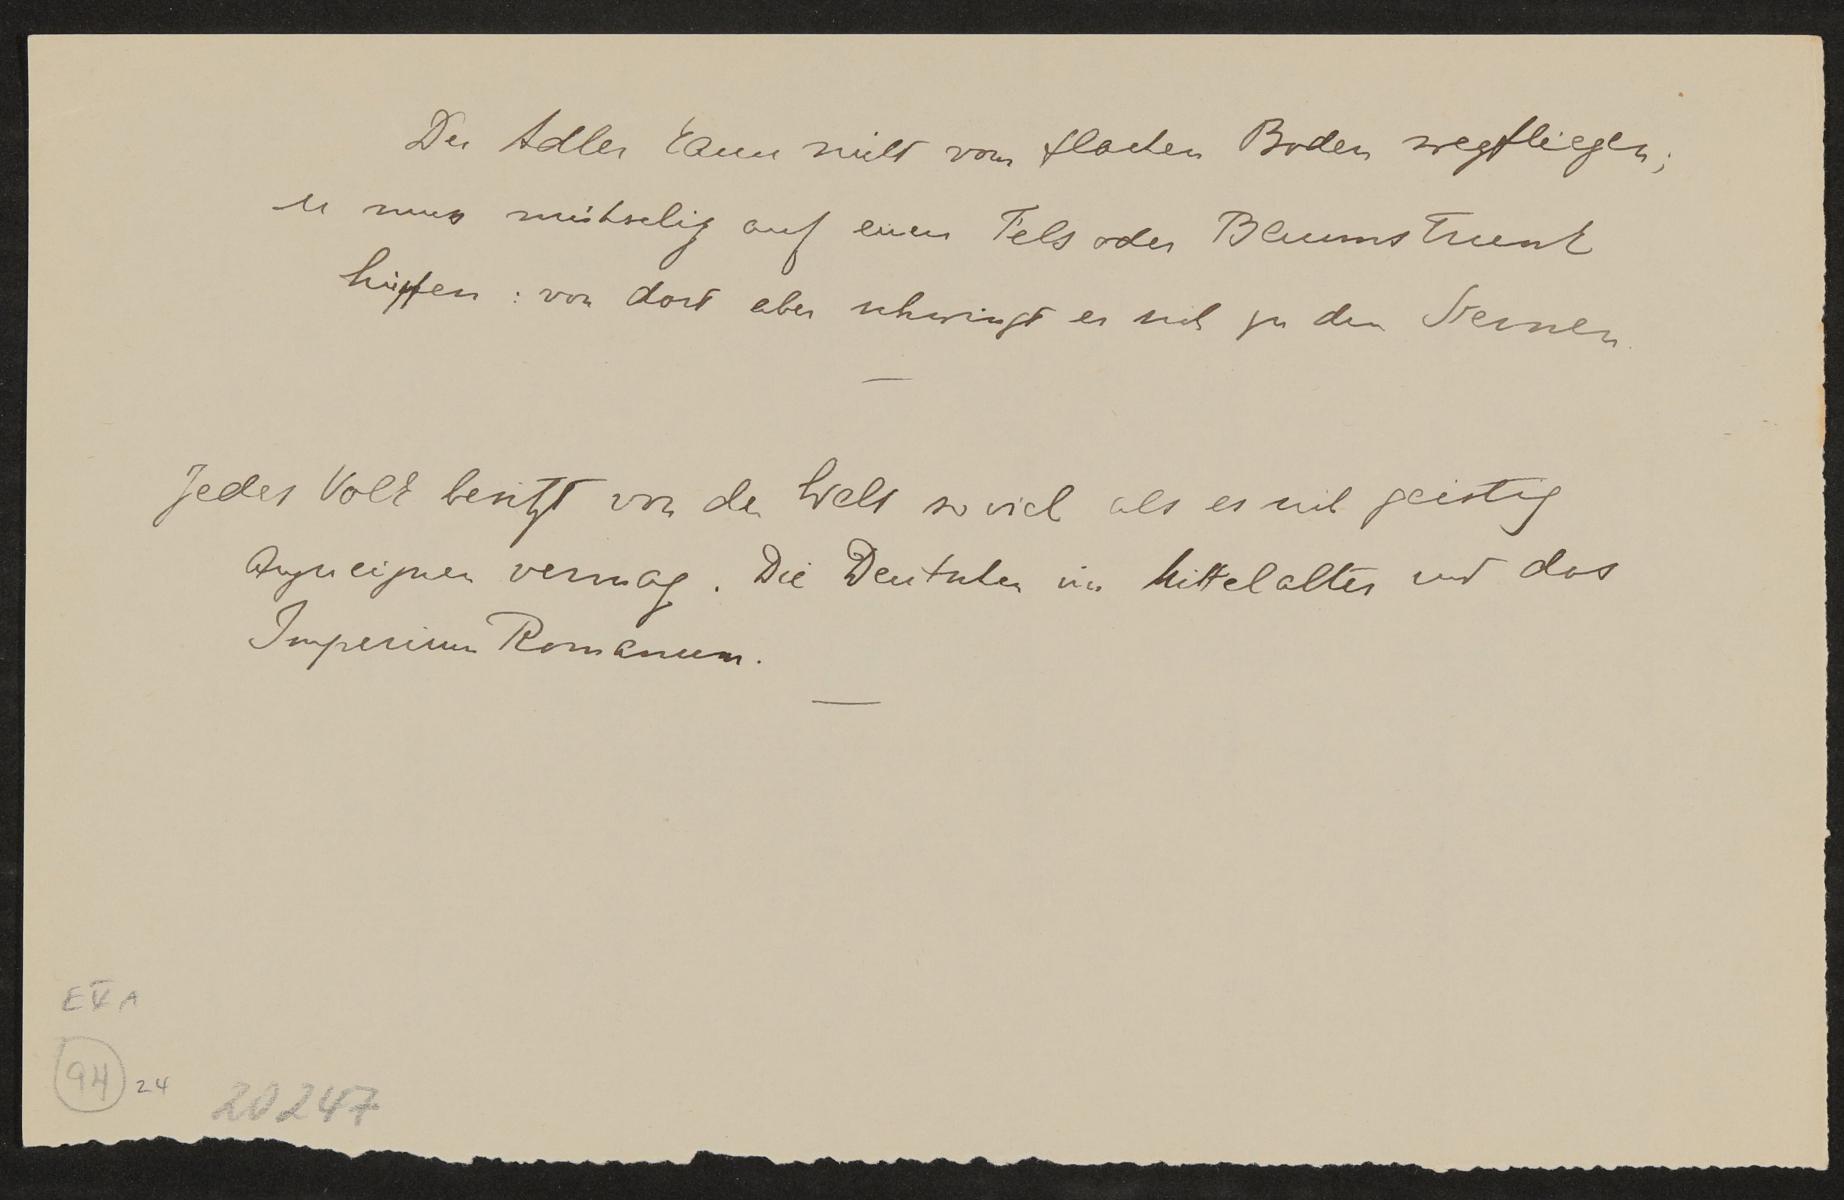 Der Adler kann nicht vom flachen Boden wegfliegen;
er muss mühselig auf einen Fels oder Baumstrunk
hüpfen: von dort aber schwingt er sich zu den Sternen.
—
Jedes Volk besitzt von der Welt so viel als es sich geistig
anzueignen vermag. Die Deutschen im Mittelalter und das
Imperium Romanum.
—
E V A
94 24 20247